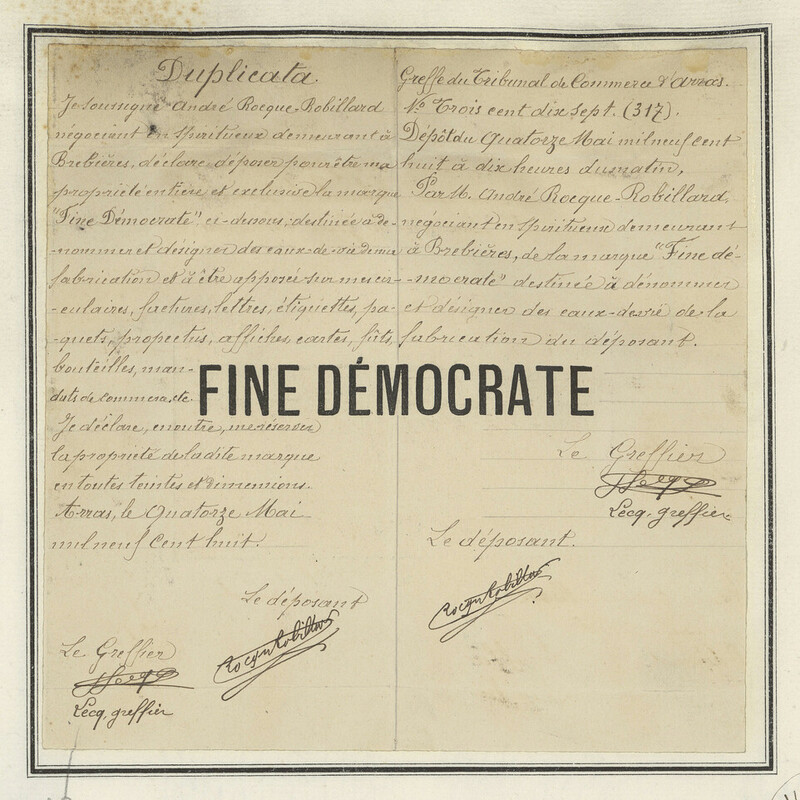 Duplicata.
Je soussigné André Rocque-Robillard
négociant en spiritueux demeurant à
Brebières, déclare déposer pour être ma
propriété entière et exclusive la marque
"Fine Démocrate" ci-dessous, destinée à dé-
-nommer et désigner des eaux-de-vie de ma
fabrication et à être apposée sur mes cir-
-culaires, factures, lettres, étiquettes, pa-
-quets, propectus, affiches, cartes, fûts,
bouteilles, man-
dats de commerce, etc.
FINE DÉMOCRATE
Je déclare, en outre, me réserver
la propriété de la dite marque
en toutes teintes et dimensions.
Arras, le Quatorze Mai
mil neuf Cent huit.
Le déposant
Rocque Robillard
Le Greffier
Lecq, greffier
Greffe du Tribunal de Commerce d'Arras.
N° Trois cent dix sept. (317).
Dépôt du Quatorze Mai mil neuf cent
huit à dix heures du matin,
Par M. André Rocque-Robillard,
négociant en spiritueux demeurant
à Brebières, de la marque "Fine dé-
-mocrate" destinée à dénommer
et désigner des eaux-de-vie de la
fabrication du déposant.
Le Greffier
Lecq, greffier
Le déposant.
Rocque Robillard